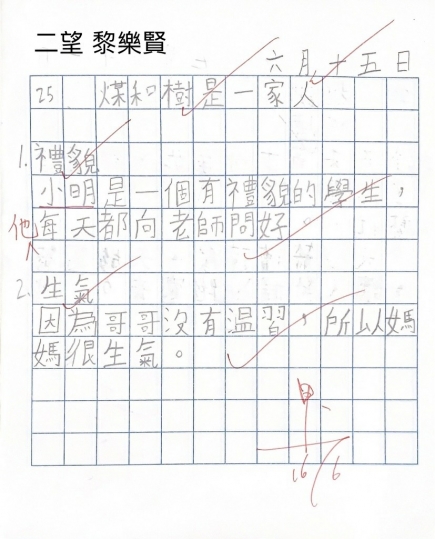 二望 黎樂賢
六月十五日
25 煤和樹是一家人
1. 禮貌
小明是一個有禮貌的學生，
他每天都向老師問好。
2. 生氣
因為哥哥沒有温習，所以媽
媽很生氣。
16/6